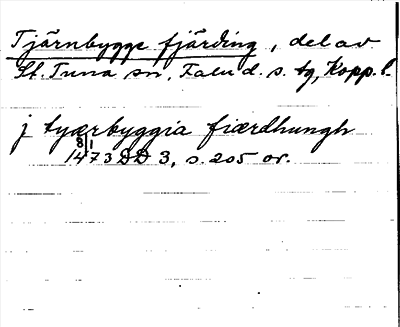 Tjärnbygge fjärding, del av
St. Tuna sn, Falu d. s. tg, Kopp. l.
j tyærbyggia fiærdhungh
8/1 1473 DD 3, s. 205 or.